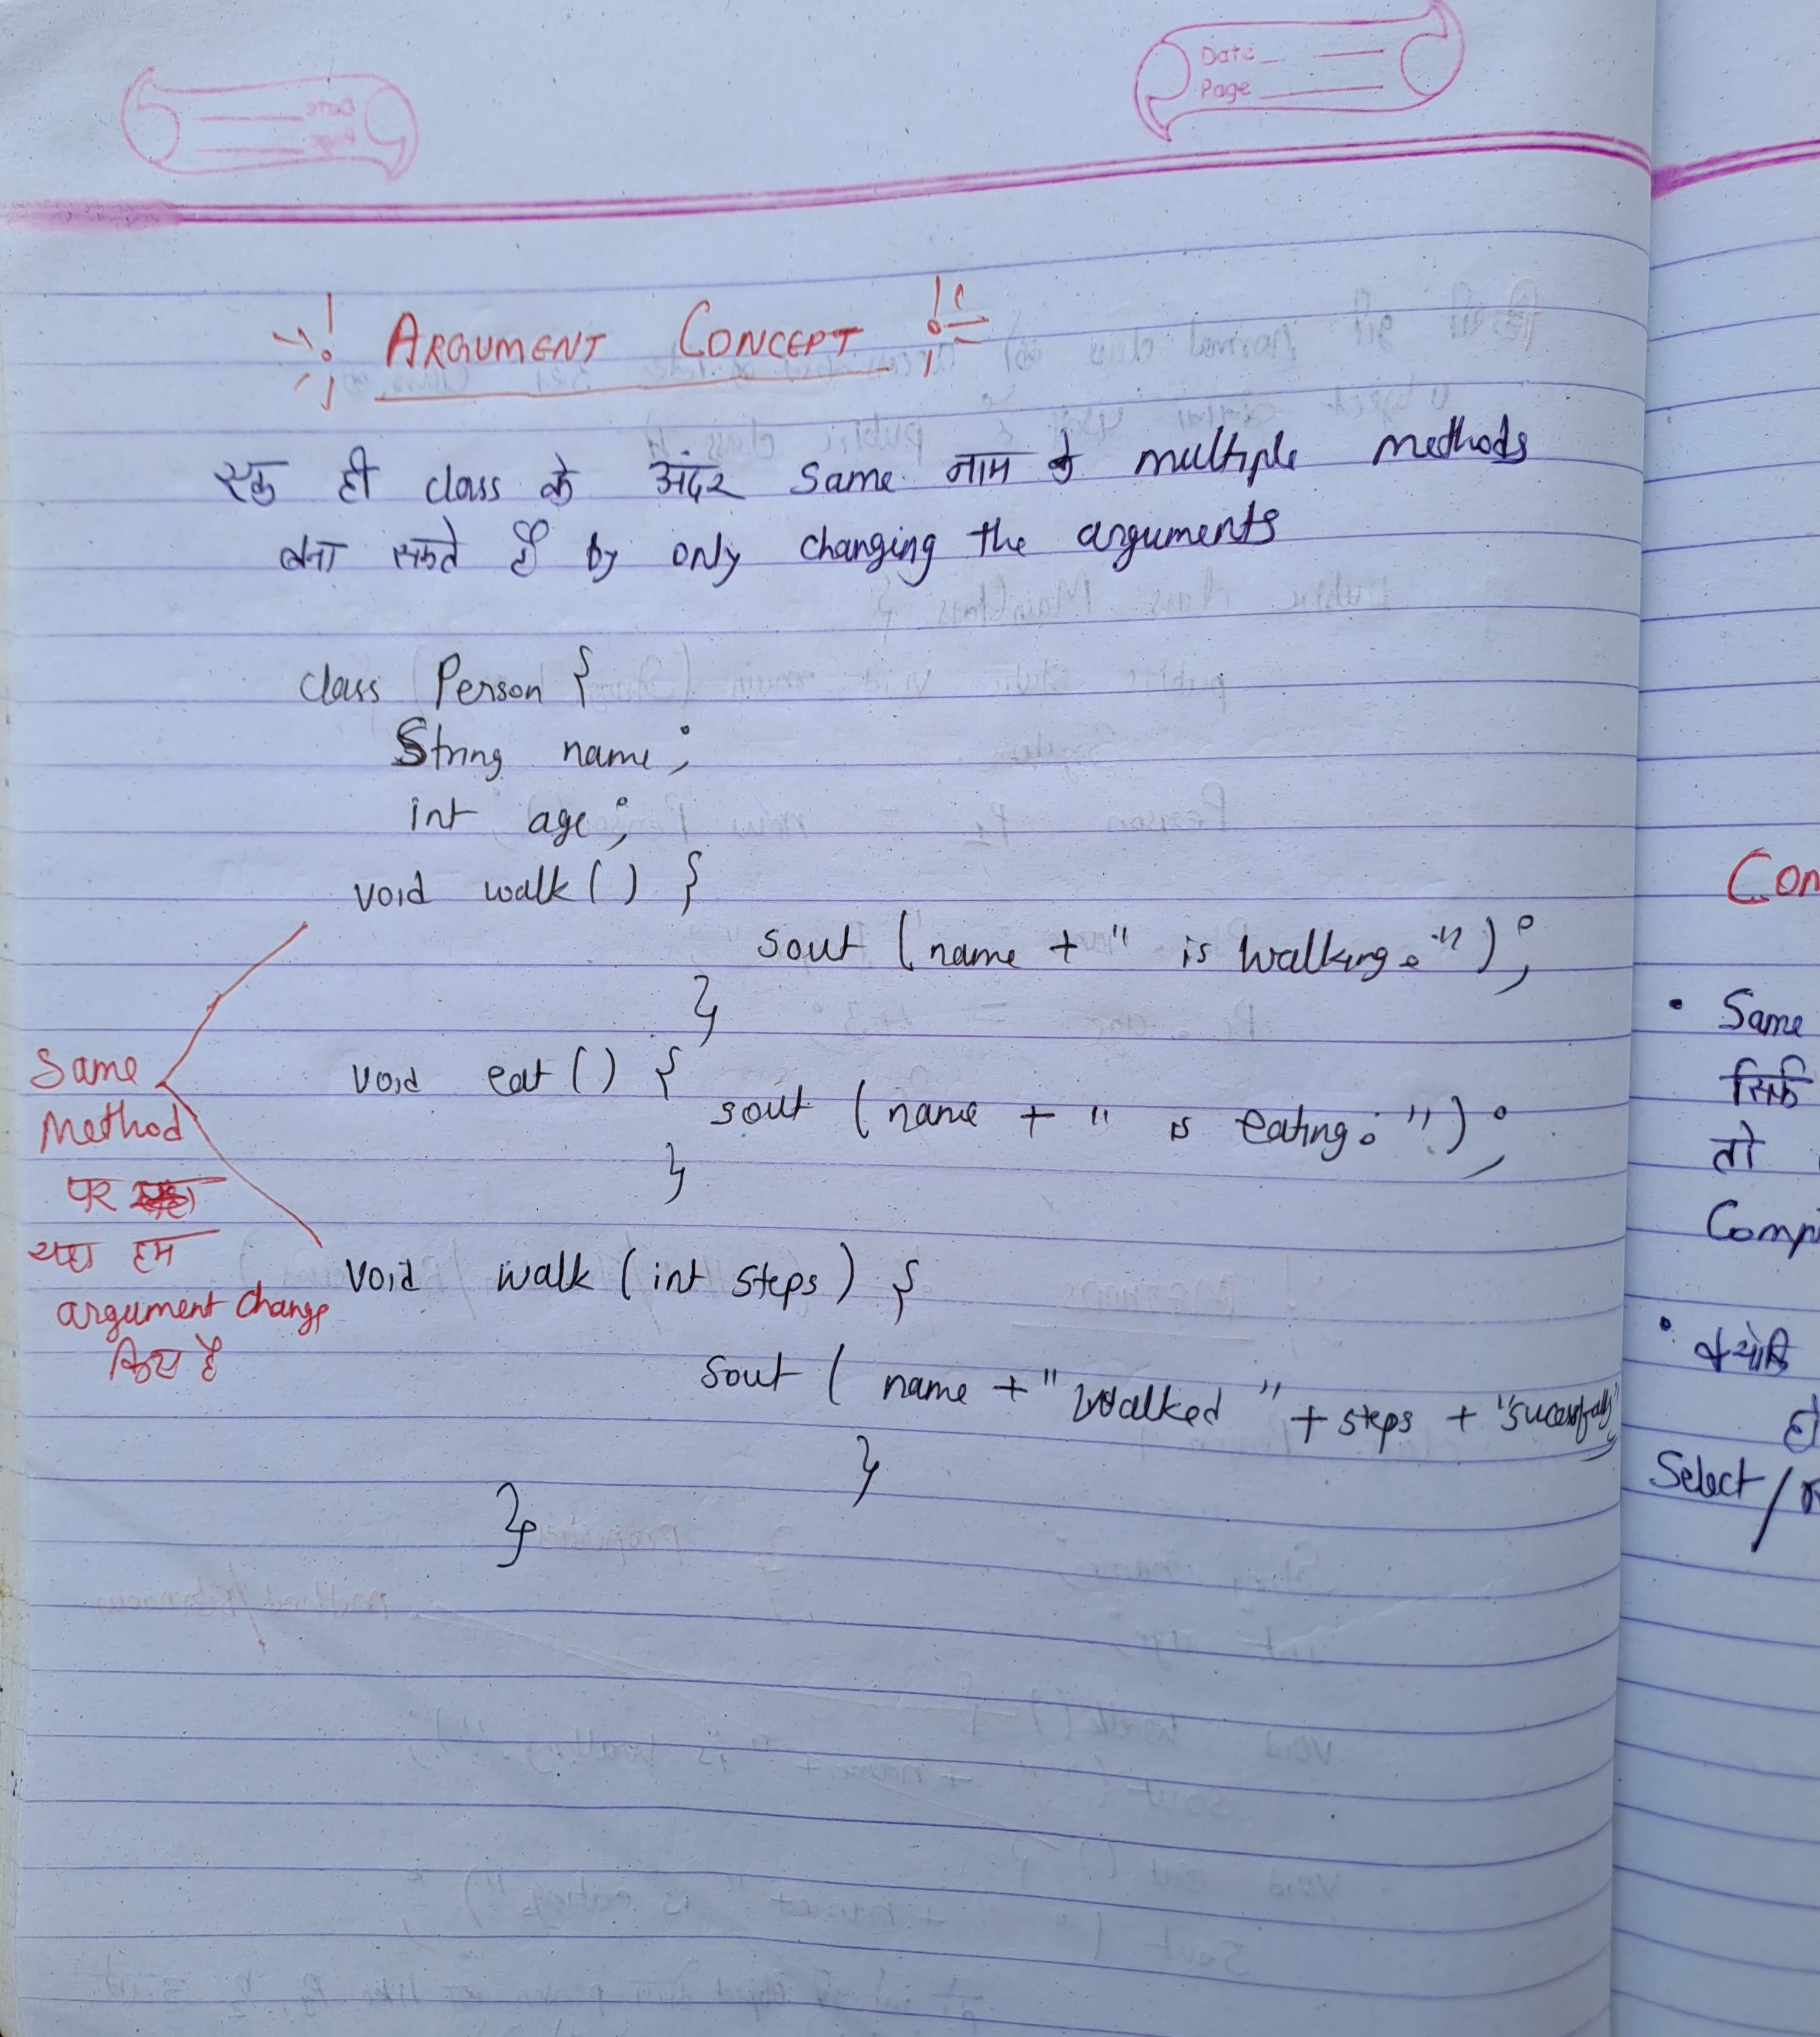 Date
Page
ARGUMENT CONCEPT
एक ही class के अंदर same नाम के multiple methods
बना सकते हैं by only changing the arguments
class Person {
String name;
int age;
void walk() {
sout (name + " is walking.");
}
void eat() {
sout (name + " is eating.");
}
void walk (int steps) {
sout ( name + "Walked " + steps + "sucessfully"
}
}
Same
Method
पर
यहा हम
argument change
किए है
Con
• Same
सिर्फ
तो
Compi
• क्योकि
हो
Select/